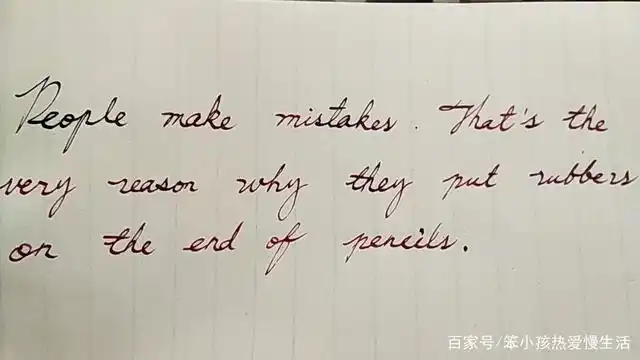 People make mistakes. That's the
very reason why they put rubbers
on the end of pencils.
百家号/笨小孩热爱慢生活